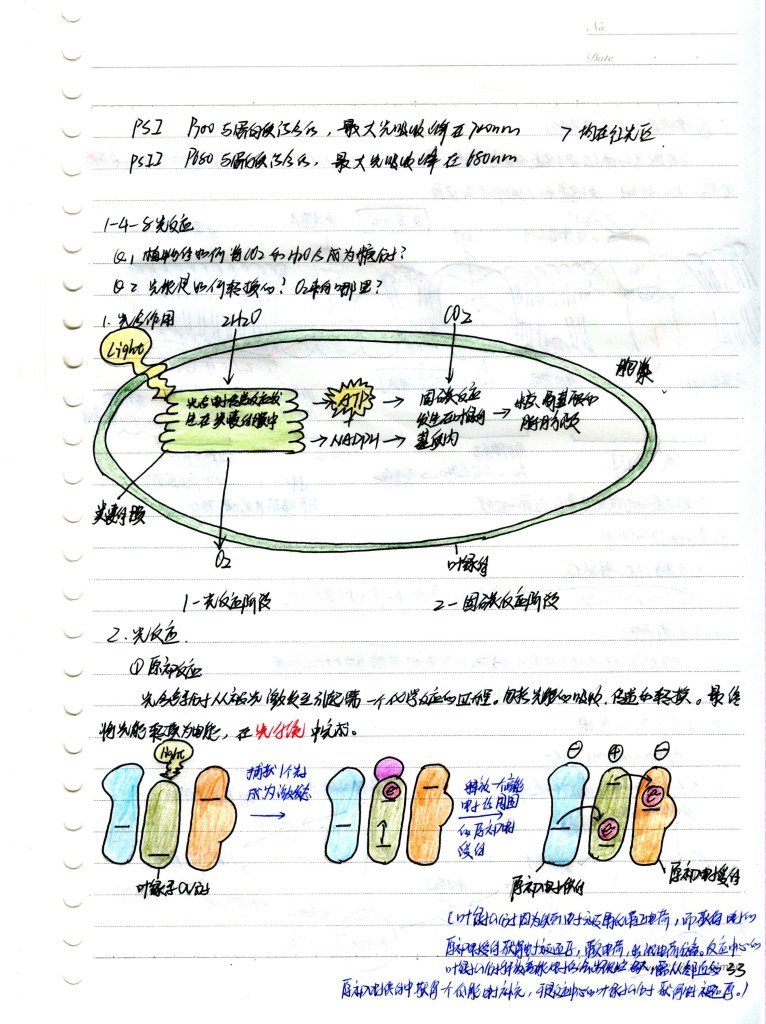 No
Date
PSI P700与蛋白质结合后，最大光吸收峰在700nm > 均在红光区
PSII P680与蛋白质结合后，最大光吸收峰在680nm
1-4-5光反应
Q1 植物体如何将CO2和H2O合成为糖的?
Q2 光能是如何转换的? O2来自哪里?
1. 光合作用
2H2O
CO2
Light
胞浆
光合电子传递反应发
生在类囊体膜中
ATP
+
NADPH
固碳反应
发生在叶绿体
基质内
糖、氨基酸和
脂肪酸
类囊体膜
O2
叶绿体
1-光反应阶段
2-固碳反应阶段
2. 光反应
①原初反应
光合色素分子从被光激发至引起第一个化学反应的过程。包括光能的吸收、传递和转换。最终
将光能转换为电能，在光系统中完成。
light
捕获1个光子
成为激发态
释放一个高能
电子给周围
的原初电子
受体
⊖ ⊕ ⊖
e
e
e
叶绿素a分子
原初电子供体
原初电子受体
(叶绿素a分子因为失去电子而带正电荷，而获得电子的
原初电子受体获得电子被还原，带负电荷，出现电荷分离。反应中心的
叶绿素a分子，需从邻近的
原初电子供体中获得一个低能电子补充，于是反应中心的叶绿素a分子获得电子被还原。)
33